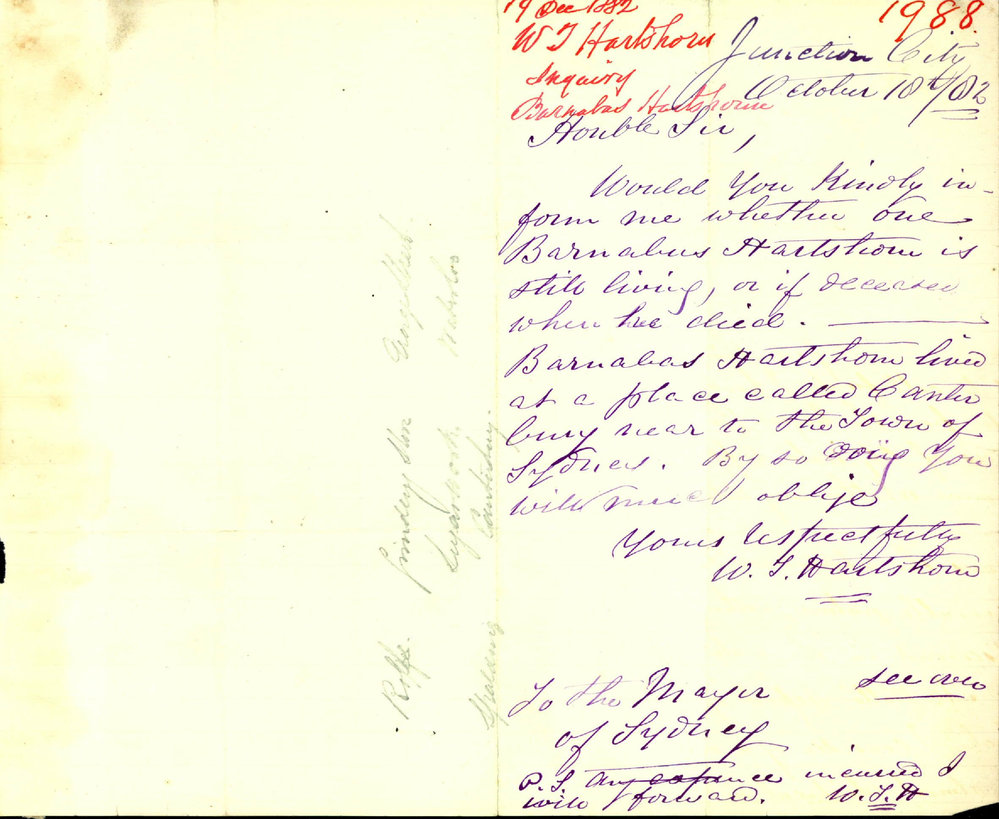 19 Dec 1882
1988.
W J Hartshorn
Inquiry
Barnabas Hartshorn
Junction City
October 18th/82
Honble Sir,
Would you Kindly in-
form me whether one
Barnabus Hartshorn is
still living, or if deceased
when he died.
Barnabas Hartshorn lived
at a place called Canter
bury near to the Town of
Sydney. By so doing You
will much oblige
Yours respectfully
W. J. Hartshorn
see over
To the Mayor
of Sydney
P.S. Any expence incurred I
will forward. W. J. H
Rolfe.
Canterbury.